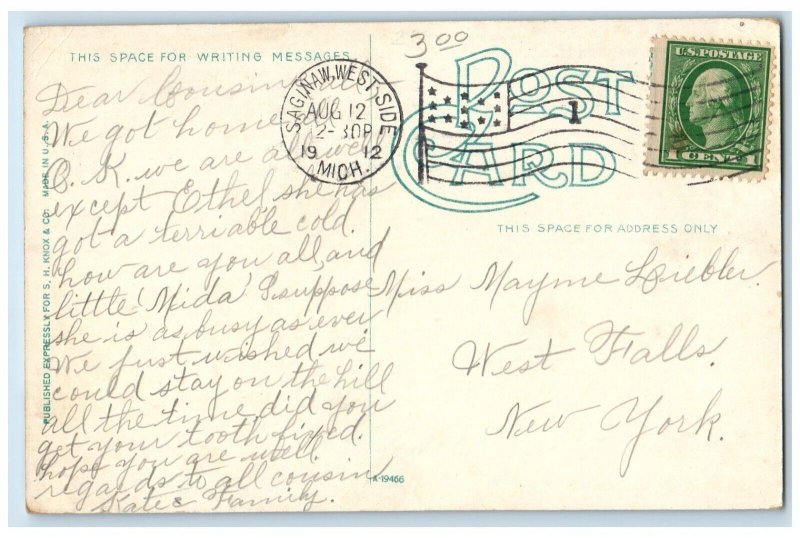 THIS SPACE FOR WRITING MESSAGES
3 00
POST
CARD
U.S. POSTAGE
1 CENT 1
SAGINAW, WEST SIDE
AUG 12
2-30P
19 12
MICH.
1
THIS SPACE FOR ADDRESS ONLY
PUBLISHED EXPRESSLY FOR S. H. KNOX & CO. MADE IN U.S.A.
Dear Cousin
We got home
O.K. we are all well
except Ethel she has
got a terriable cold.
how are you all, and
little "Mida" I suppose
she is as busy as ever
We just wished we
could stay on the hill
all the time did you
get your tooth fixed.
hope you are well.
regards to all cousin
Kate & Family.
Miss Mayme Liebler.
West Falls.
New York.
A-19466